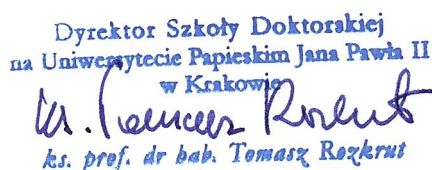 Dyrektor Szkoły Doktorskiej
na Uniwersytecie Papieskim Jana Pawła II
w Krakowie
ks. Tomasz Rozkrut
ks. prof. dr hab. Tomasz Rozkrut